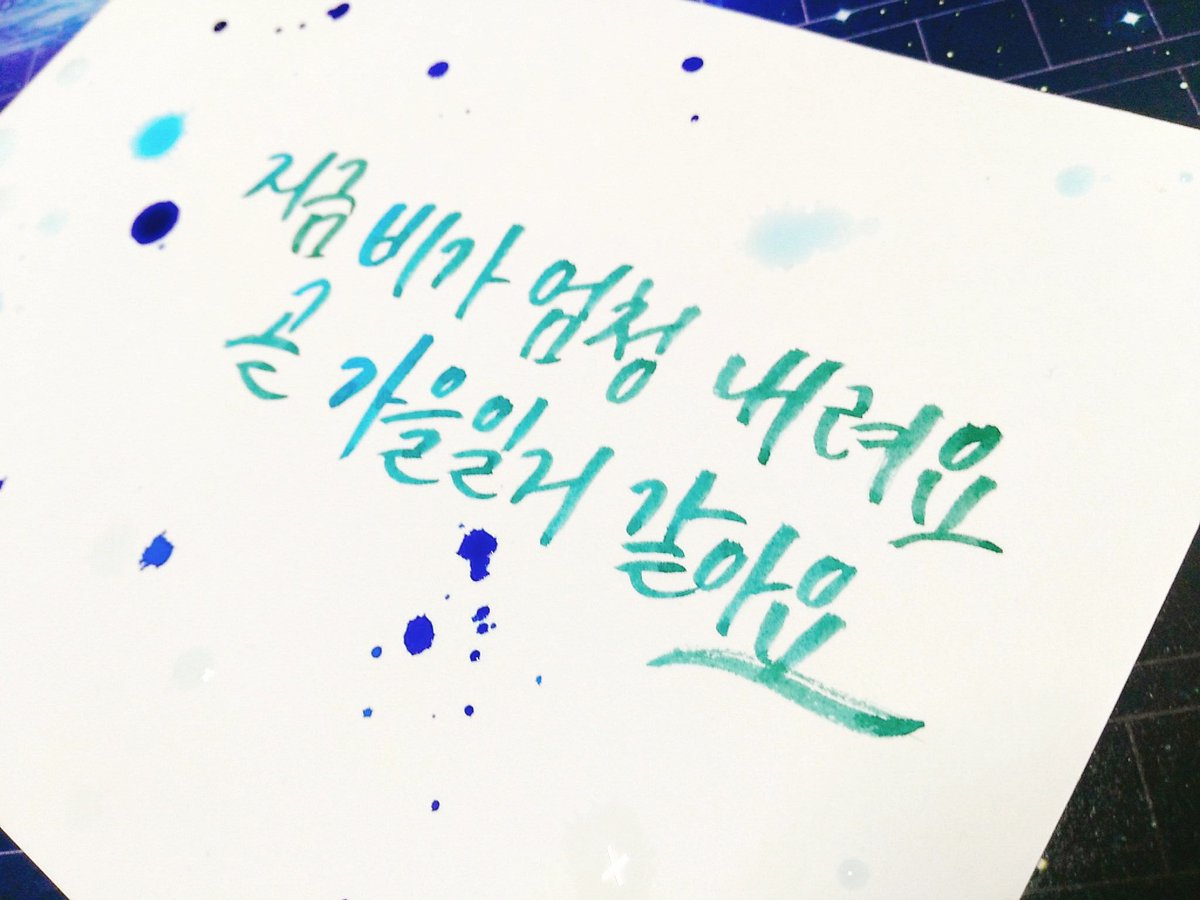 지금 비가 엄청 내려요
곧 가을일거 같아요